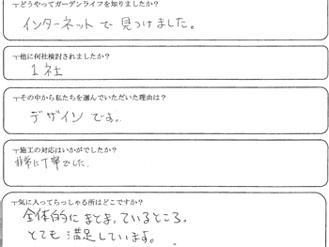 どうやってガーデンライフを知りましたか?
インターネットで見つけました。
他に何社検討されましたか?
1社
その中から私たちを選んでいただいた理由は?
デザインです。
施工の対応はいかがでしたか?
非常に丁寧でした。
気に入ってらっしゃる所はどこですか?
全体的にまとまっているところ。
とても満足しています。